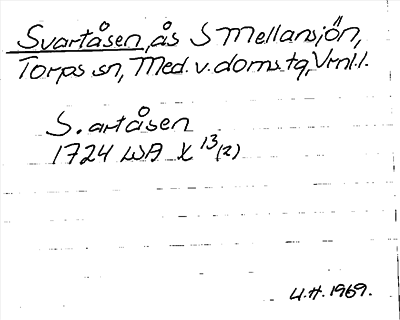 Svartåsen, ås S Mellansjön,
Torps sn, Med. v. doms. tg, Vrnl. l.
S. artåsen
1724 LSA X 13 (2)
U.H. 1969.